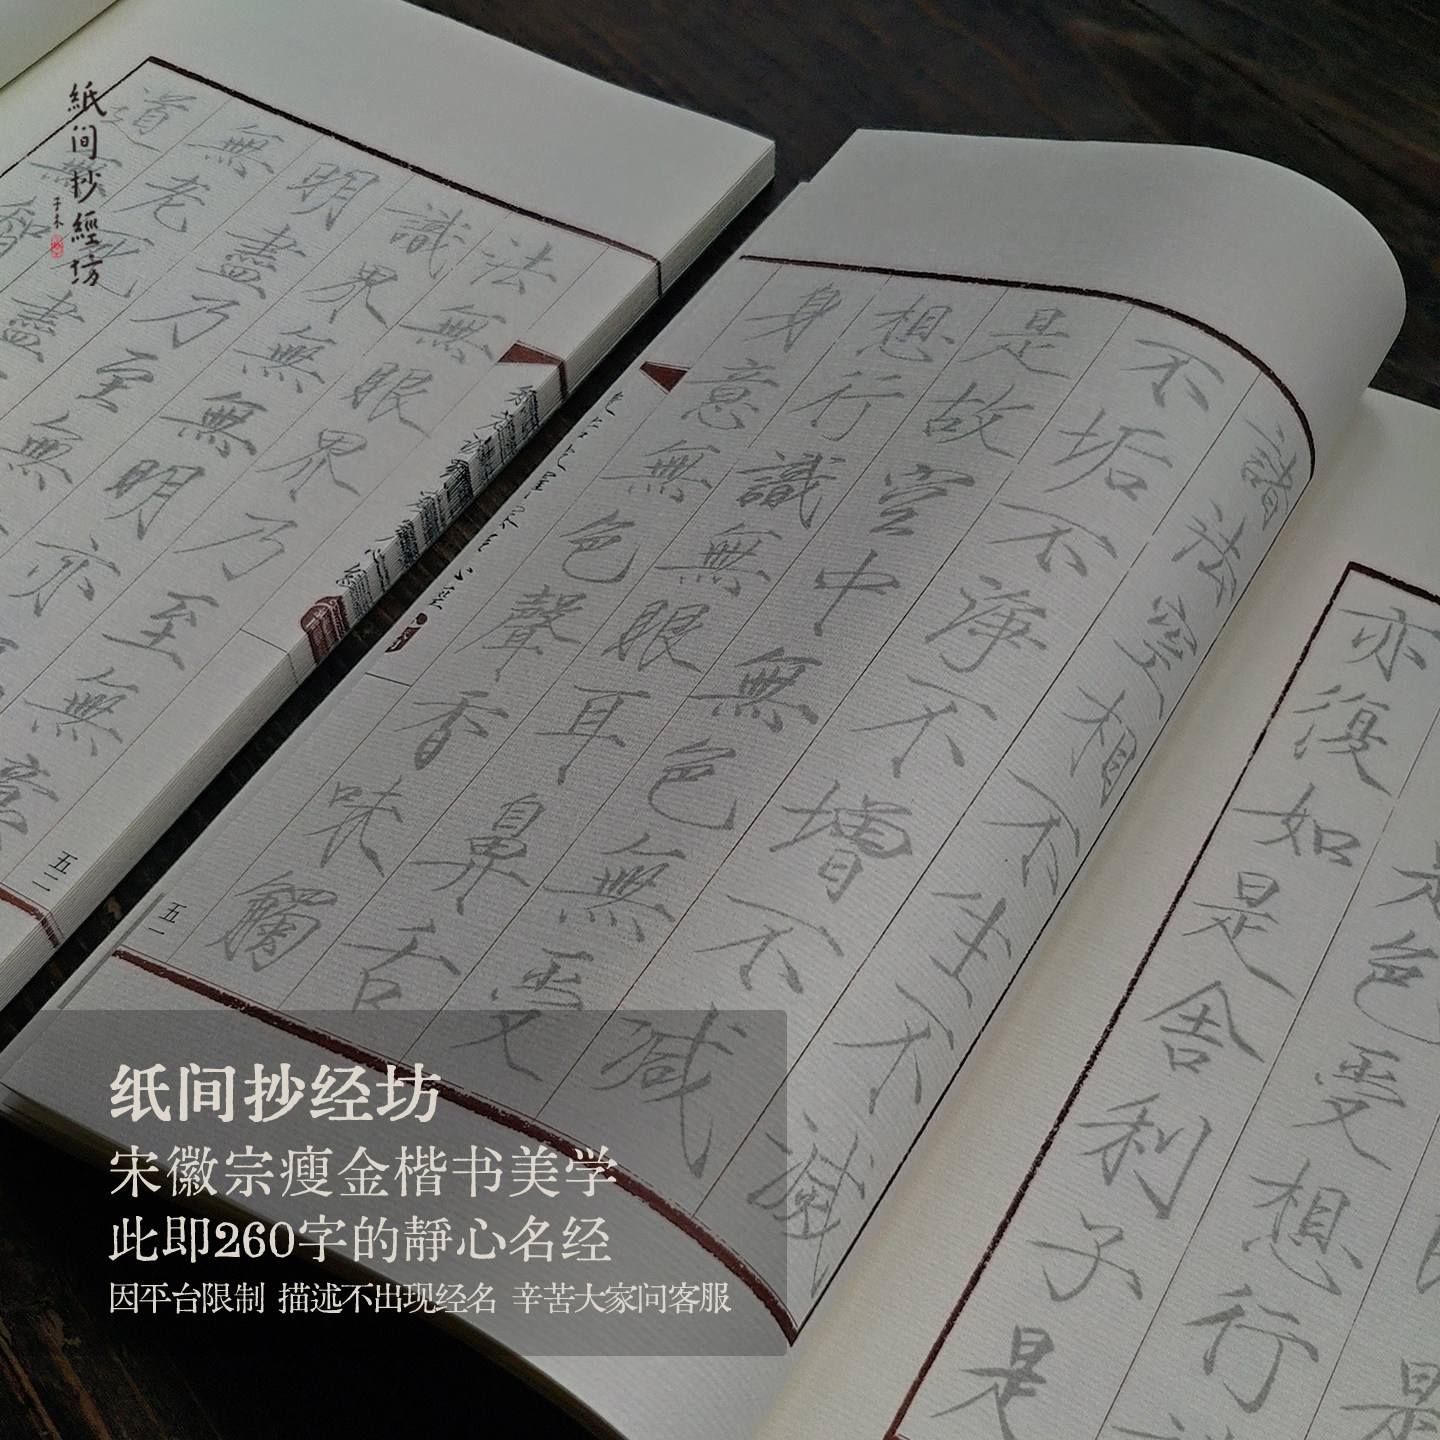 紙间抄經坊
是色受想行
亦復如是舍利子是
諸法空相不生不滅
不垢不淨不增不減
是故空中無色無受
想行識無眼耳鼻舌
身意無色聲香味觸
五一
法無眼界乃至無意
識界無無明亦
明盡乃至無
無老死盡
道無智
五二
纸间抄经坊
宋徽宗瘦金楷书美学
此即260字的靜心名经
因平台限制 描述不出现经名 辛苦大家问客服